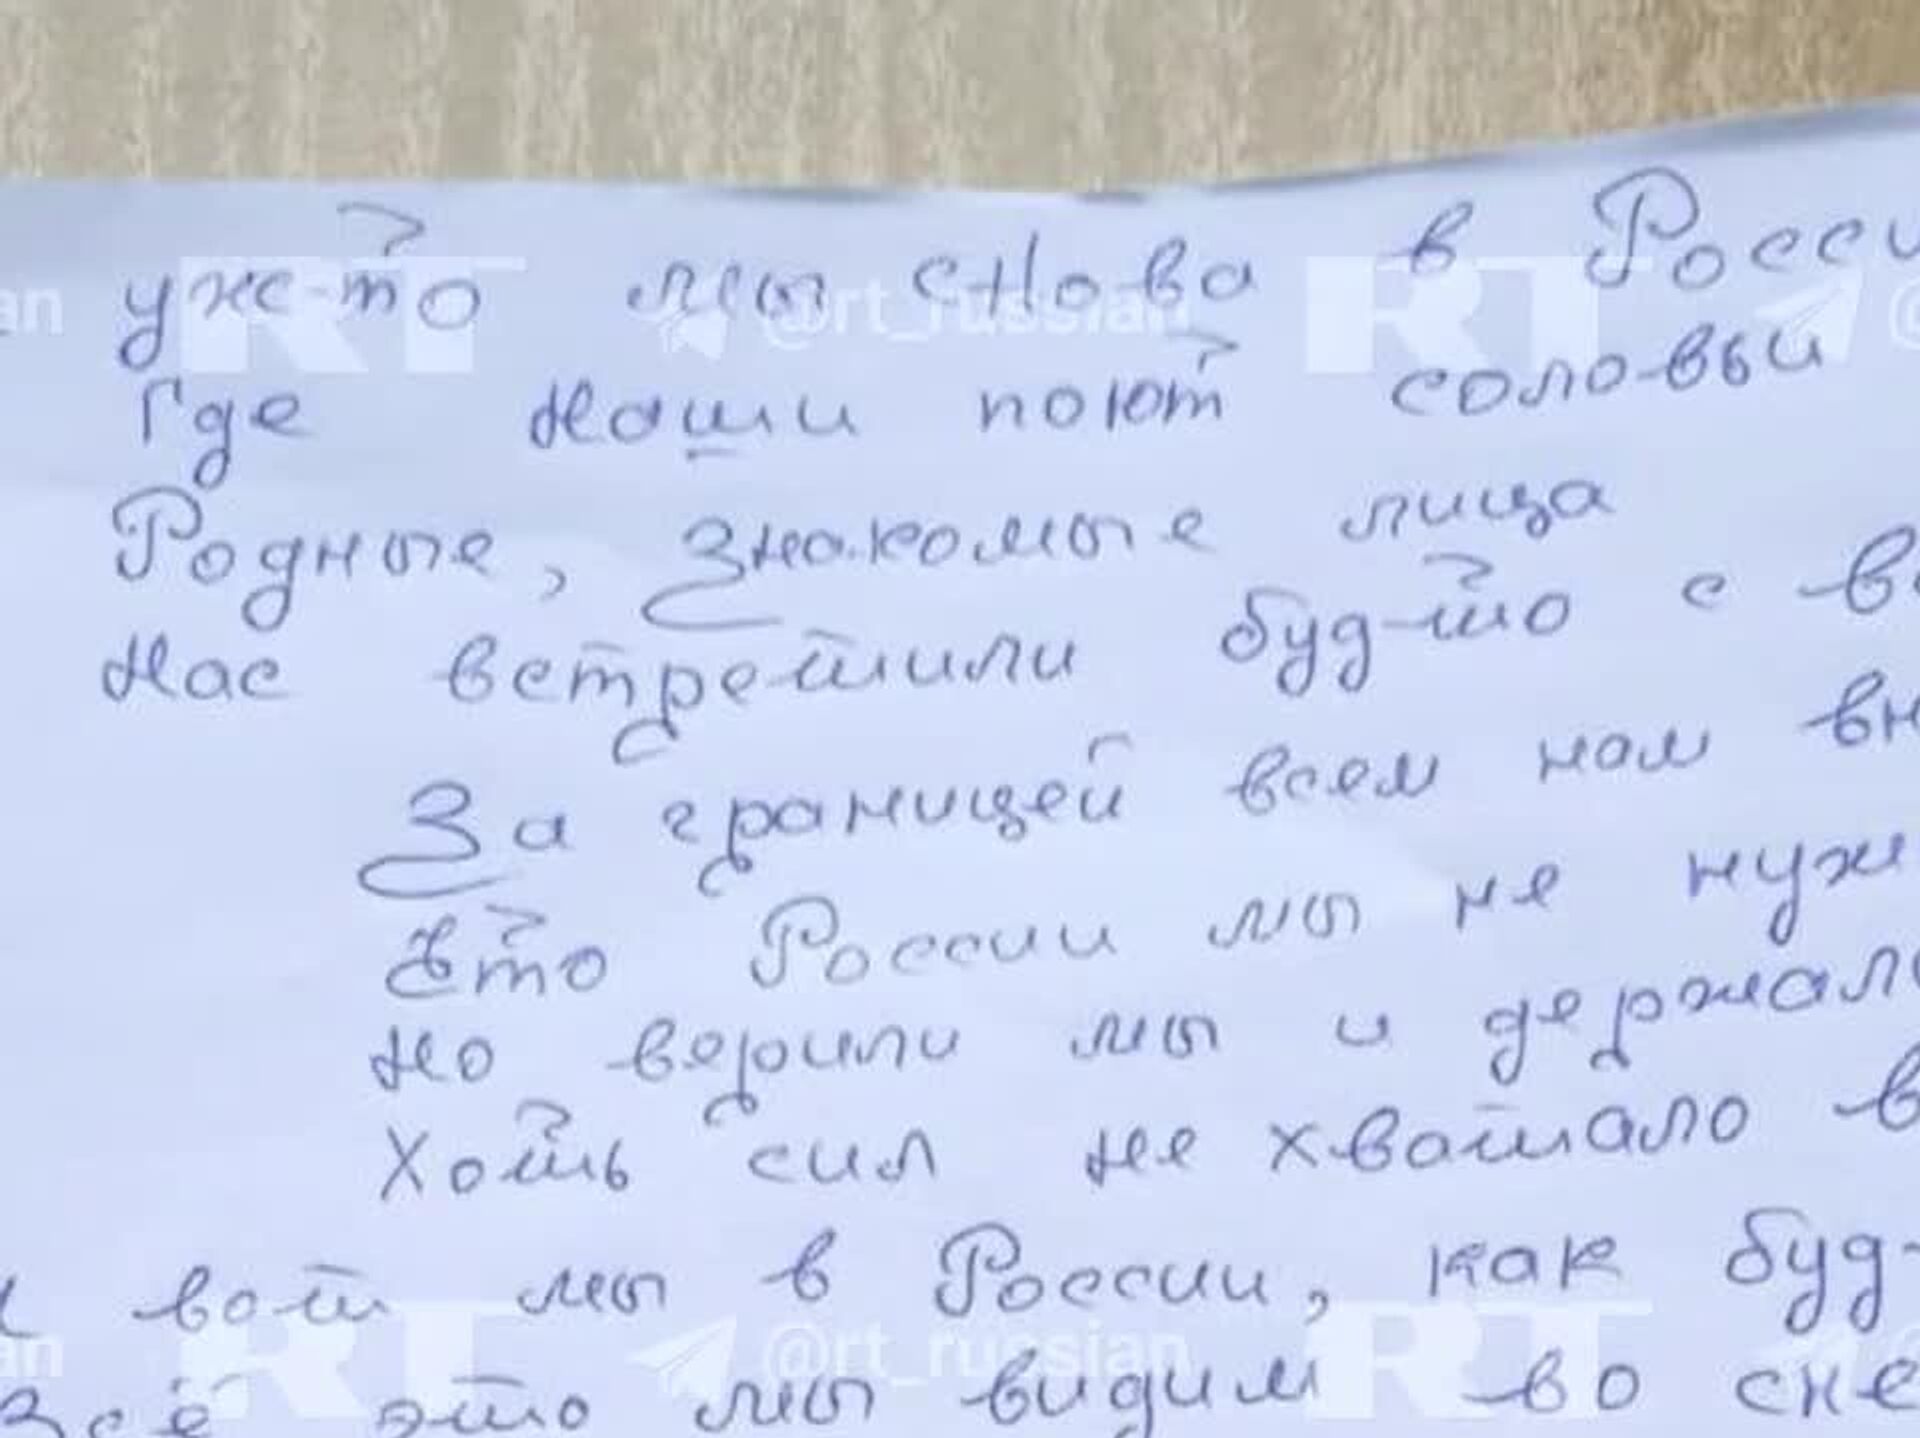 уже-то мы снова в Росси
Где наши поют соловьи
Родные, знакомые лица
Нас встретили буд-то с в
За границей всем нам вн
Что России мы не нуж
Но верили мы и держал
Хоть сил не хватало в
вот мы в России, как буд-
Всё это мы видим во сне
RT @rt_russian